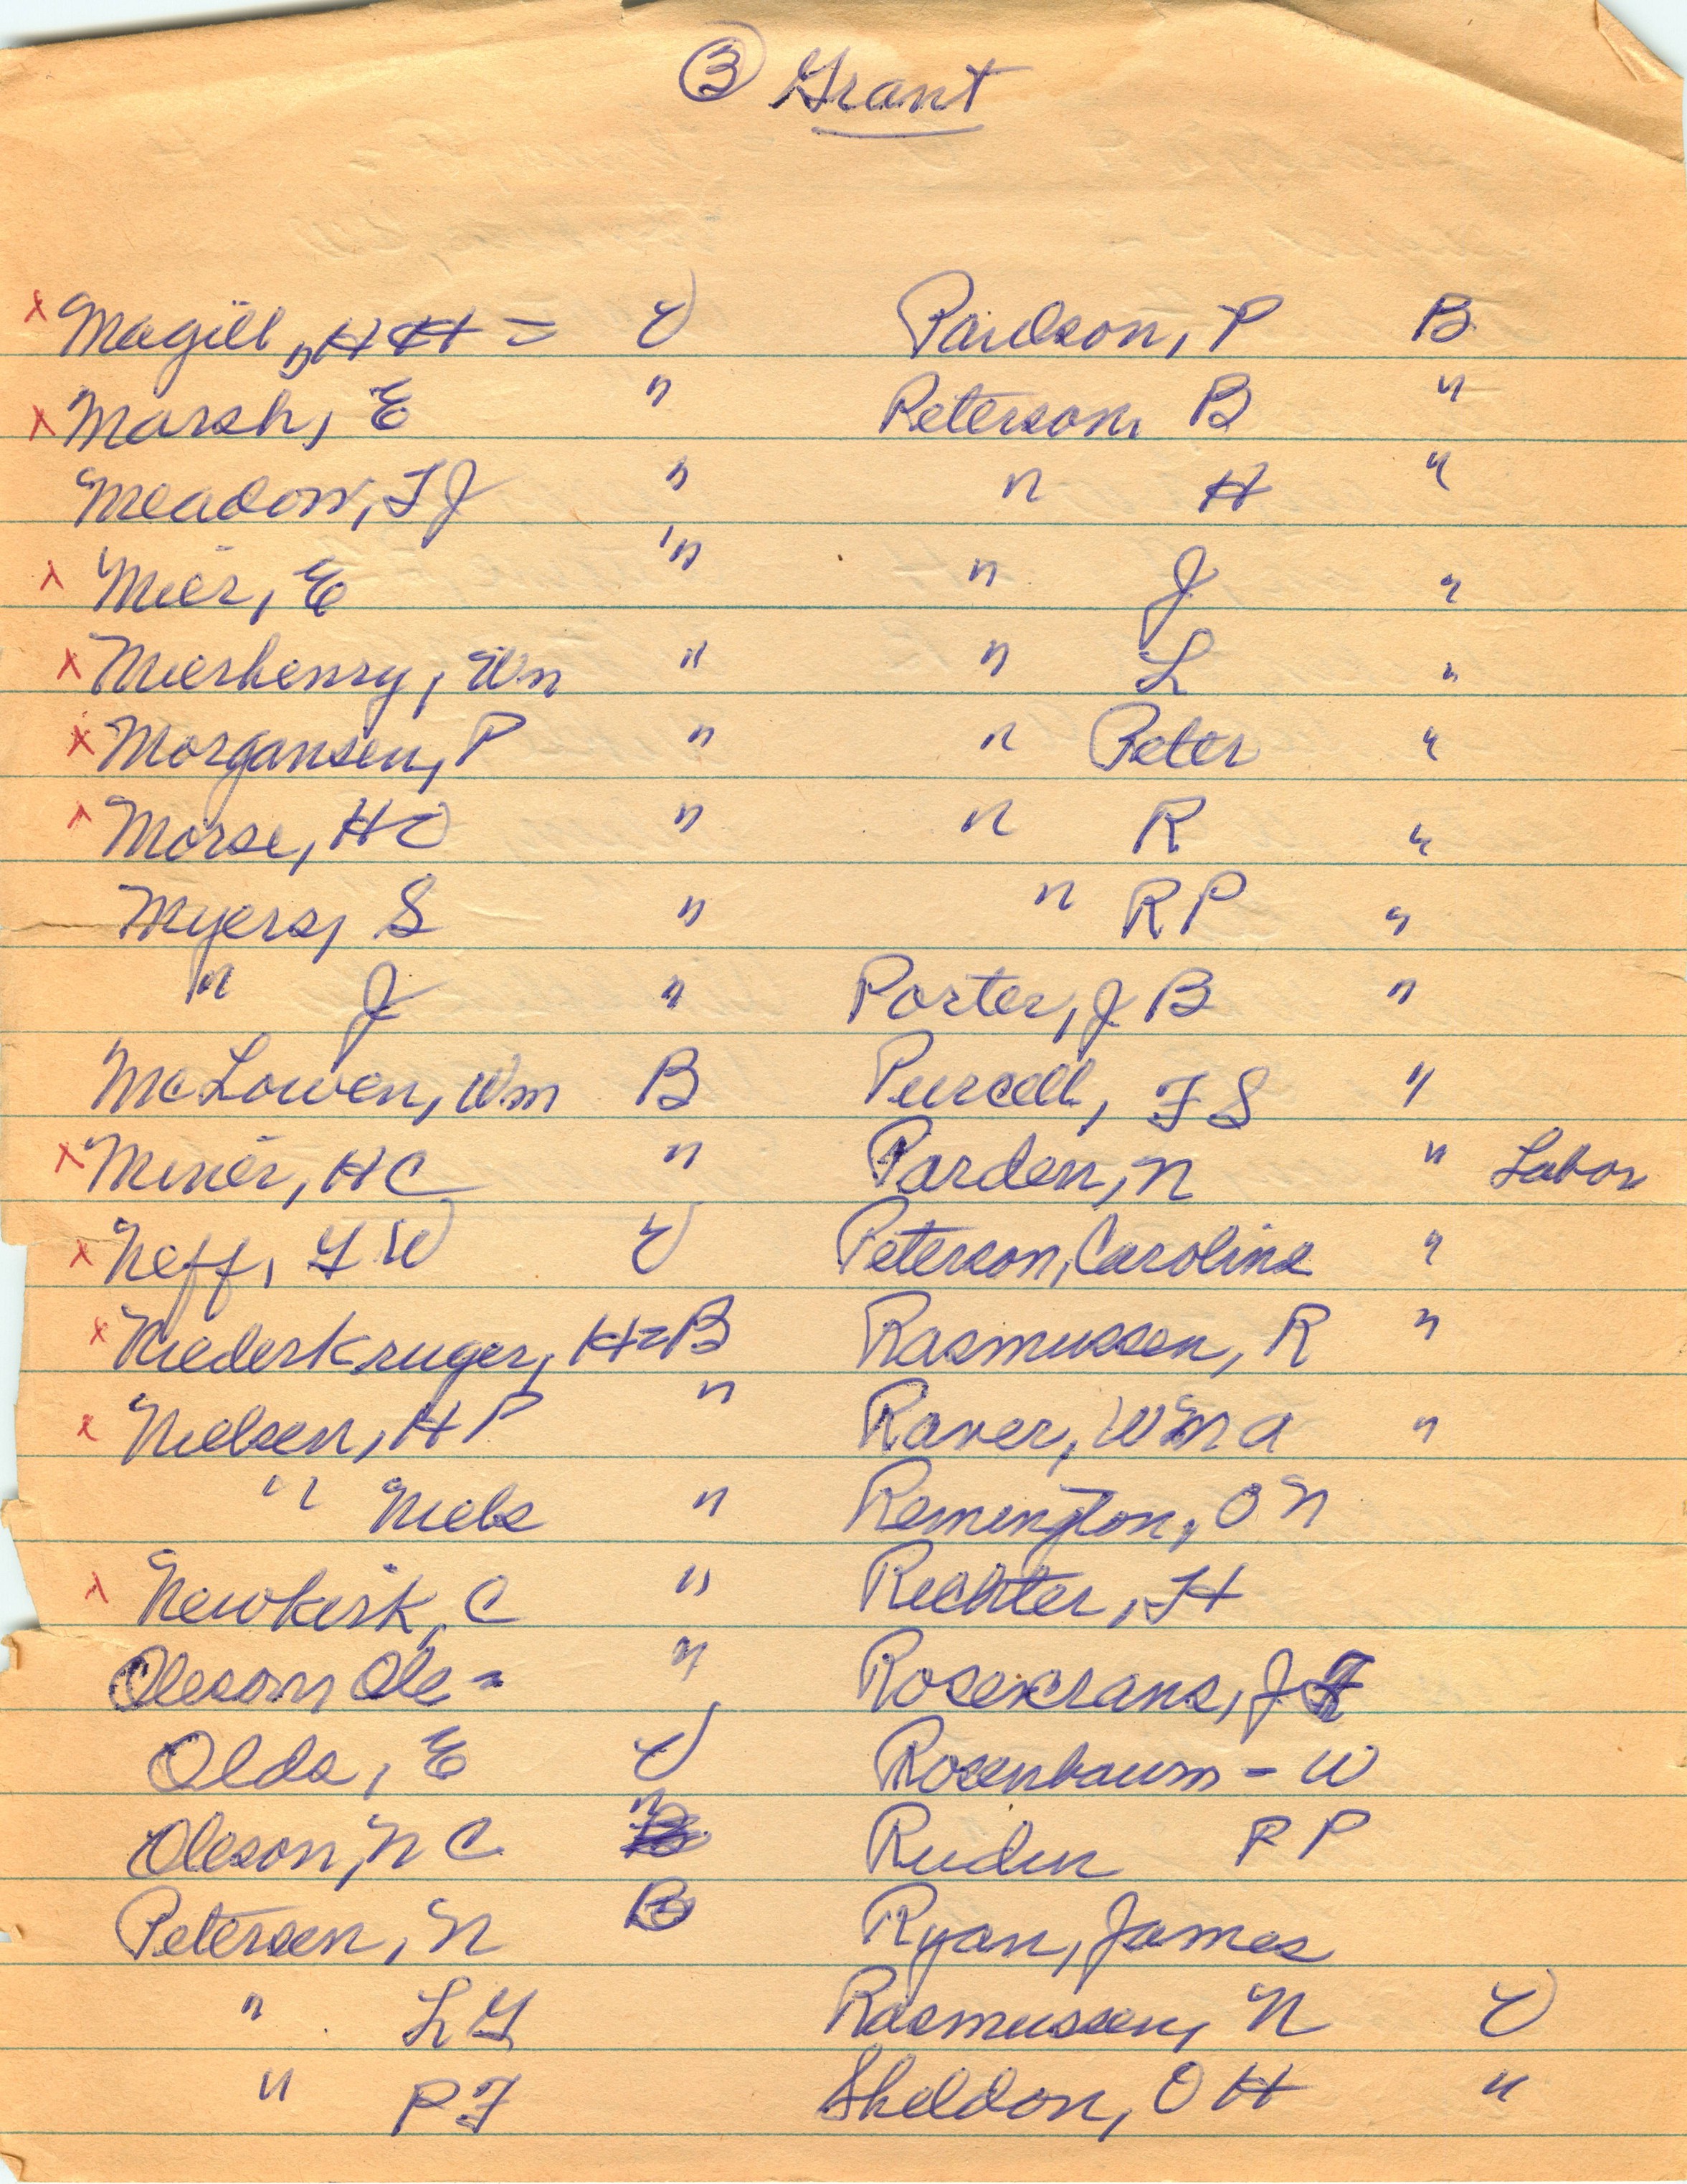 ③ Grant
x Magill, H H = V
x Marsh, E "
Meadow, F J "
x Mier, E "
x Mierhenry, Wm "
x Morgansen, P "
x Morse, H C "
Myers, S "
" J "
McLowen, Wm B
x Miner, H C "
x Neff, G W V
x Niederkruger, H = B
x Nielsen, H P "
" Niels "
x Newkirk, C "
Oleson, Ole = "
Olds, E V
Oleson, N C "
Petersen, N B
" L G
" P F
Paulson, P B
Peterson, B "
" H "
" J "
" L "
" Peter "
" R "
" R P "
Porter, J B "
Purcell, F S "
Parden, N " Labor
Peterson, Caroline "
Rasmussen, R "
Raver, Wm A "
Remington, O N
Richter, F H
Rosekrans, J
Rosenbaum - W
Rudin R P
Ryan, James
Rasmussen, N V
Sheldon, O H "